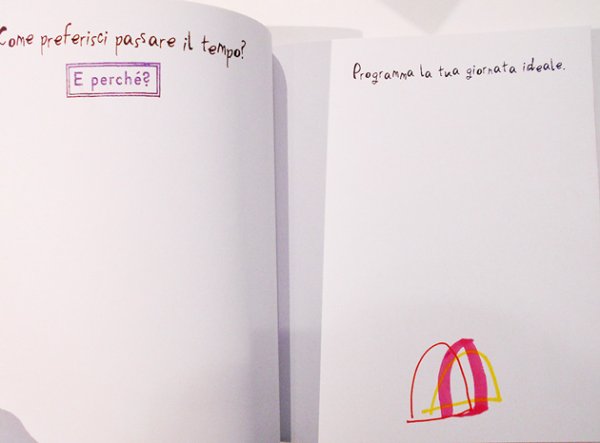 Come preferisci passare il tempo?
E perché?
Programma la tua giornata ideale.